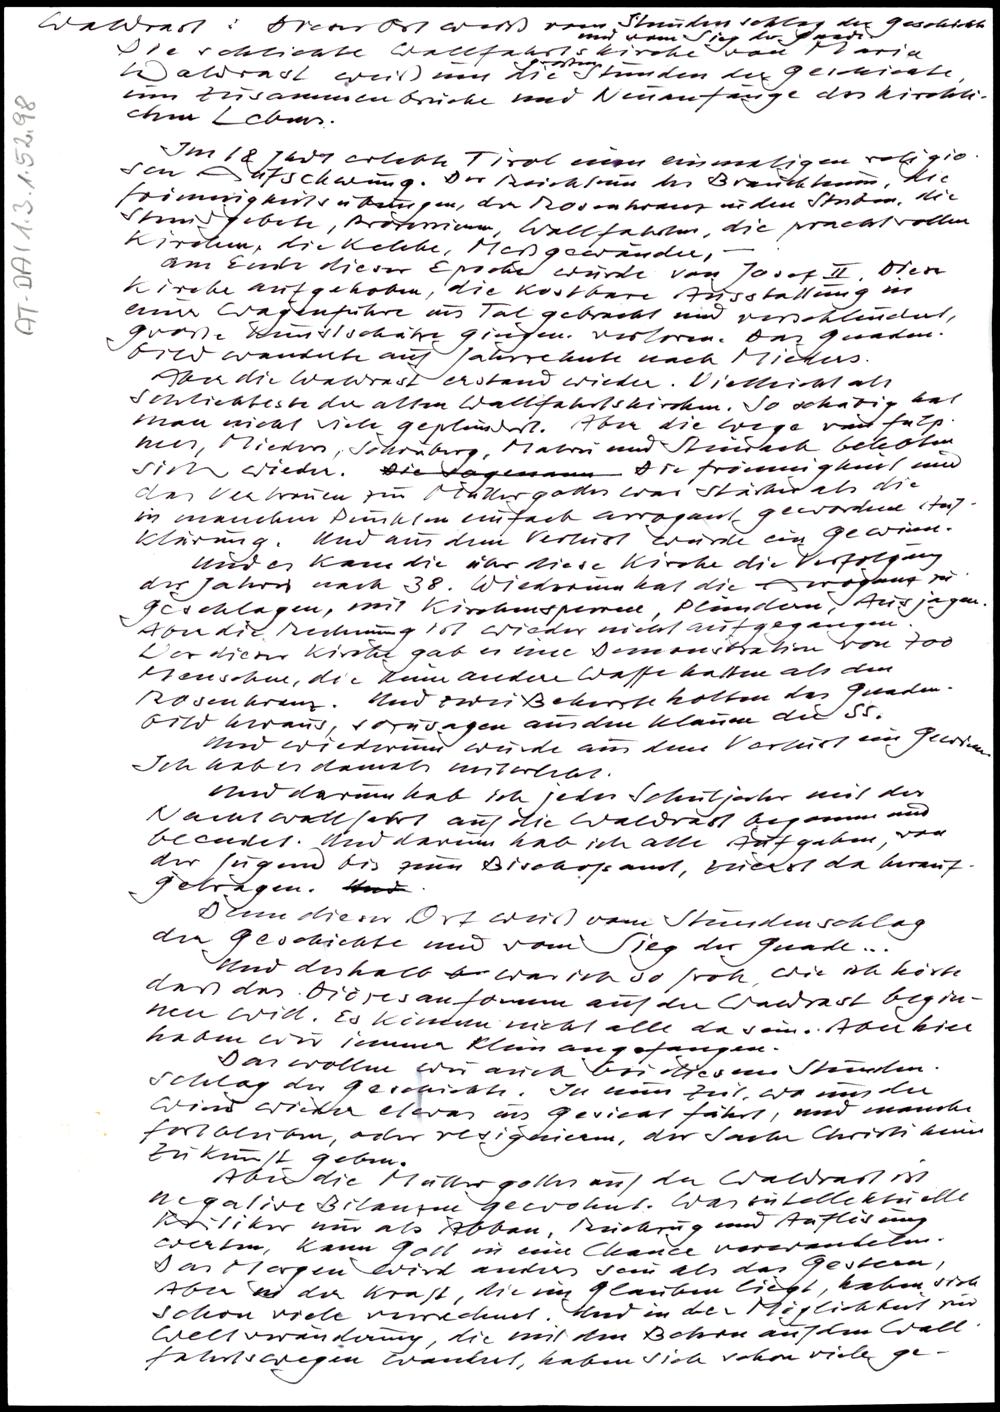 Waldrast : Dieser Ort weiß vom Stundenschlag der Geschichte
und vom Sieg der Gnade
Die schlichte Wallfahrtskirche von Maria
Waldrast weiß um die großen Stunden der Geschichte,
um Zusammenbrüche und Neuanfänge des kirchli-
chen Lebens.
Im 18 Jhdt erlebte Tirol einen einmaligen religiö-
sen Aufschwung. Der Reichtum des Brauchtums, die
Frömmigkeitsübungen, der Rosenkranz in den Stuben, die
Stundgebete, Prozessionen, Wallfahrten, die prachtvollen
Kirchen, die Kelche, Meßgewänder, –
Am Ende dieser Epoche wurde von Josef II. diese
Kirche aufgehoben, die kostbare Ausstattung in
einer Wagenfuhre ins Tal gebracht und verschleudert,
große Kunstschätze gingen verloren. Das Gnaden-
bild wanderte auf Jahrzehnte nach Mieders.
Aber die Waldrast erstand wieder. Vielleicht als
Schlichteste der alten Wallfahrtskirchen. So schäbig hat
man nicht viele geplündert. Aber die Wege von Fulp-
mes, Mieders, Schönberg, Matrei und Steinach belebten
sich wieder. Die sogenann Die Frömmigkeit und
das Vertrauen zur Muttergottes war stärker als die
in manchen Punkten einfach arrogant gewordene Auf-
klärung. Und aus dem Verlust wurde ein Gewinn.
Und es kam die über diese Kirche die Verfolgung
der Jahre nach 38. Wiederum hat die Arroganz zu-
geschlagen, mit Kirchensperren, Plündern, Ausjagen.
Aber die Rechnung ist wieder nicht aufgegangen.
Vor dieser Kirche gab es eine Demonstration von 700
Menschen, die keine andere Waffe hatten als den
Rosenkranz. Und zwei Beherzte holten das Gnaden-
bild heraus, sozusagen aus den Klauen der SS.
Und wiederum wurde aus dem Verlust ein Gewinn
Ich hab es damals miterlebt.
Und darum hab ich jedes Schuljahr mit der
Nachtwallfahrt auf die Waldrast begonnen und
beendet. Und darum hab ich alle Aufgaben, von
der Jugend bis zum Bischofsamt, zuerst da herauf-
getragen. Und
Denn dieser Ort weiß vom Stundenschlag
der Geschichte und vom Sieg der Gnade...
Und deshalb war ich so froh, wie ich hörte
daß das Diözesanforum auf der Waldrast begin-
nen wird. Es können nicht alle da sein. Aber hier
haben wir immer klein angefangen.
Das wollen wir auch bei diesem Stunden-
schlag der Geschichte. In einer Zeit, wo uns der
Wind wieder etwas ins Gesicht fährt, und manche
fortbleiben, oder resignieren, der Sache Christi keine
Zukunft geben.
Aber die Muttergottes auf der Waldrast ist
negative Bilanzen gewohnt. Was intellektuelle
Kritiker nur als Abbau, Rückzug und Auflösung
werten, kann Gott in eine Chance verwandeln.
Das Morgen wird anders sein als das Gestern,
Aber in der Kraft, die im Glauben liegt, haben sich
schon viele verrechnet. Und in der Möglichkeit zur
Weltveränderung, die mit den Betern auf den Wall-
fahrtswegen wandert, haben sich schon viele ge-
AT-DA I 1.3.1.52.98